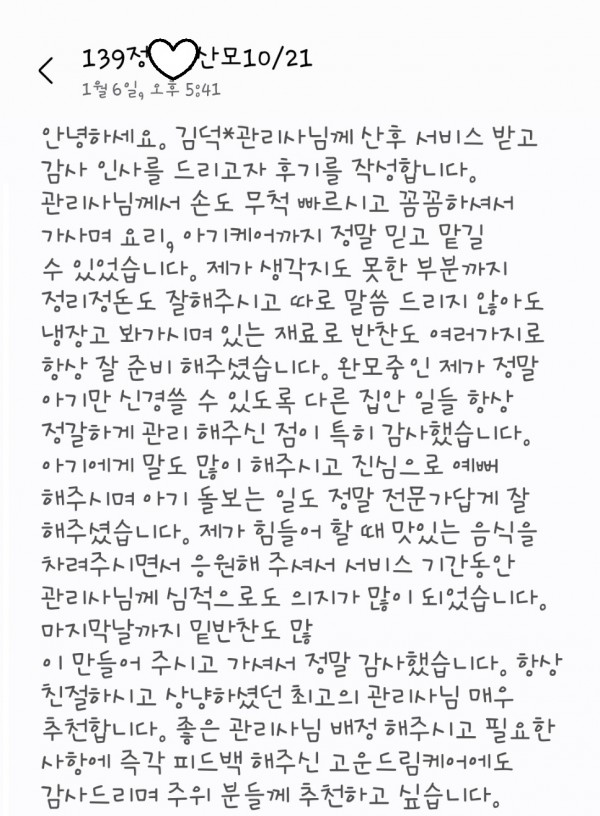 139정 산모10/21
1월 6일, 오후 5:41
안녕하세요. 김덕*관리사님께 산후 서비스 받고
감사 인사를 드리고자 후기를 작성합니다.
관리사님께서 손도 무척 빠르시고 꼼꼼하셔서
가사며 요리, 아기케어까지 정말 믿고 맡길
수 있었습니다. 제가 생각지도 못한 부분까지
정리정돈도 잘해주시고 따로 말씀 드리지 않아도
냉장고 봐가시며 있는 재료로 반찬도 여러가지로
항상 잘 준비 해주셨습니다. 완모중인 제가 정말
아기만 신경쓸 수 있도록 다른 집안 일들 항상
정갈하게 관리 해주신 점이 특히 감사했습니다.
아기에게 말도 많이 해주시고 진심으로 예뻐
해주시며 아기 돌보는 일도 정말 전문가답게 잘
해주셨습니다. 제가 힘들어 할 때 맛있는 음식을
차려주시면서 응원해 주셔서 서비스 기간동안
관리사님께 심적으로도 의지가 많이 되었습니다.
마지막날까지 밑반찬도 많
이 만들어 주시고 가셔서 정말 감사했습니다. 항상
친절하시고 상냥하셨던 최고의 관리사님 매우
추천합니다. 좋은 관리사님 배정 해주시고 필요한
사항에 즉각 피드백 해주신 고운드림케어에도
감사드리며 주위 분들께 추천하고 싶습니다.